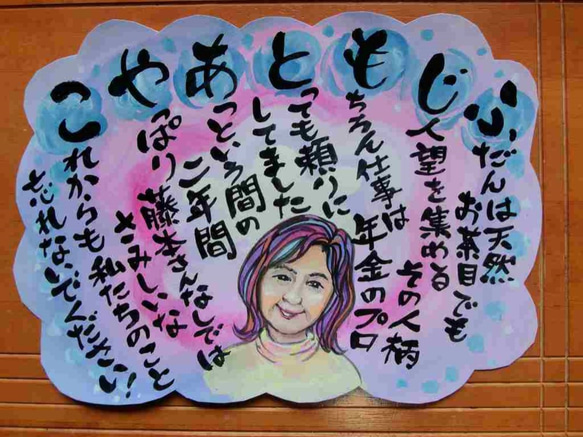 ふだんは天然
お茶目でも
じ人望を集める
その人柄
もちろん仕事は
年金のプロ
とっても頼りに
してました
あっという間の
二年間
やっぱり藤本さんなしでは
さみしいな
これからも私たちのこと
忘れないでください!